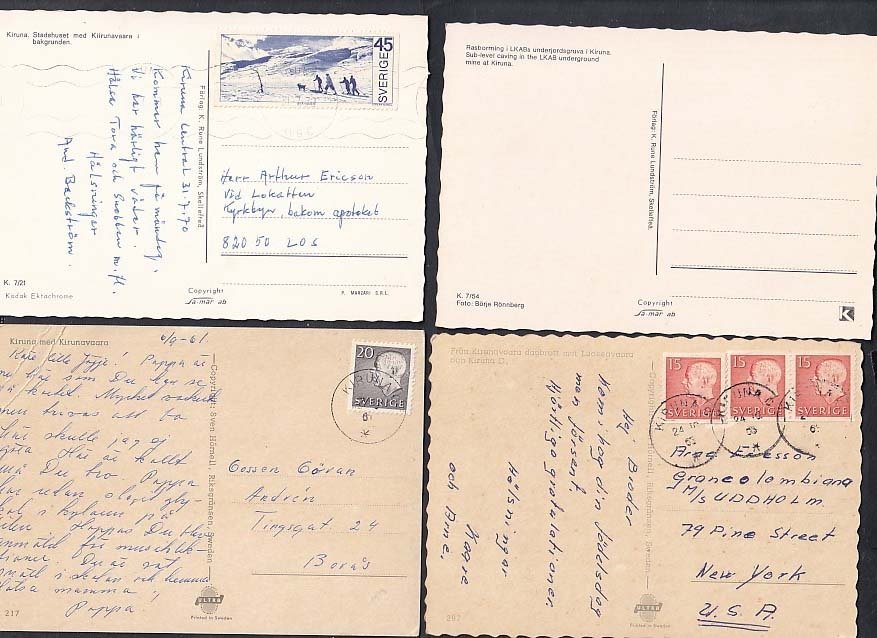 Kiruna. Stadshuset med Kiirunavaara i
bakgrunden.
45
SVERIGE
Kiruna Central 31.7.70
Kommer hem på måndag.
Vi har härligt väder.
Hälsa Tora och Snobben m.fl.
Hälsningar
And. Backström.
Förlag: K. Rune Lundström, Skellefteå
Herr Arthur Ericson
Vid Lokatten
Kyrkbyn, bakom apoteket
820 50 LOS
K. 7/21
Kodak Ektachrome
Copyright
Sa-mar ab
P. MARZARI S.R.L.
Rasborrning i LKABs underjordsgruva i Kiruna.
Sub-level caving in the LKAB underground
mine at Kiruna.
Förlag: K. Rune Lundström, Skellefteå.
K. 7/54
Foto: Börje Rönnberg
Copyright
Sa-mar ab
K
Kiruna med Kirunavaara
6/9-61.
lilla
! Pappa är
här som Du kan se
Mycket vackert
trivas att bo
Här skulle jag ej
Här är kallt
må Du tro. Pappa
har redan
i kylaren på
Hoppas Du
anmäld för
Du är
i skolan och
mamma!
Pappa
Copyright: Sven Hörnell, Riksgränsen, Sweden
20
SVERIGE
KIRUNA
Gossen Göran
Andrén
Tingsgat. 24
Borås
217
ULTRA
Printed in Sweden
Från Kirunavaara dagbrott mot Luossavaara
och Kiruna C.
Hej Broder
kom ihåg din födelsedag
men försent.
Hjärtliga gratulationer.
Hälsningar
Kaare
och Anne.
Copyright: Sven Hörnell, Riksgränsen, Sweden
15
SVERIGE
15
SVERIGE
15
SVERIGE
KIRUNA C
24
KIRUNA C
24
Ericsson
Grancolombiana
M/S UDDHOLM.
79 Pine Street
New York
U.S.A.
ULTRA
Printed in Sweden